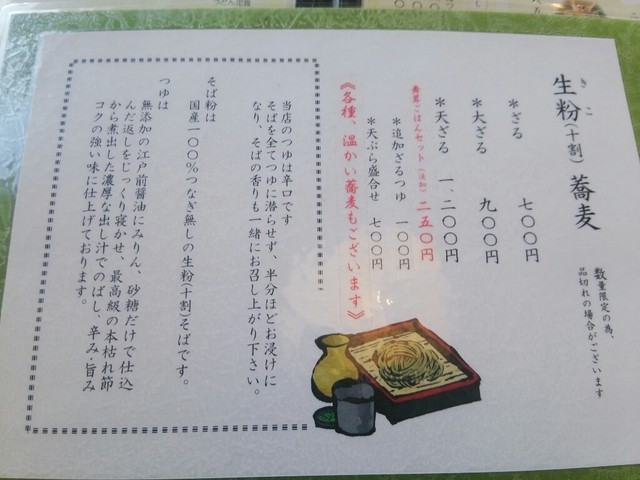 生粉(十割)蕎麦
きこ
数量限定の為、
品切れの場合がございます
*ざる 七〇〇円
*大ざる 九〇〇円
*天ざる 一、二〇〇円
蕎麦ごはんセット(追加) 二五〇円
*追加ざるつゆ 一〇〇円
*天ぷら盛合せ 七〇〇円
《各種、温かい蕎麦もございます》
当店のつゆは辛口です
そばを全てつゆに潜らせず、半分ほどお浸けに
なり、そばの香りも一緒にお召し上がり下さい。
そば粉は
国産一〇〇%つなぎ無しの生粉(十割)そばです。
つゆは
無添加の江戸前醤油にみりん、砂糖だけで仕込
んだ返しをじっくり寝かせ、最高級の本枯れ節
から煮出した濃厚な出し汁でのばし、辛み・旨み
コクの強い味に仕上げております。